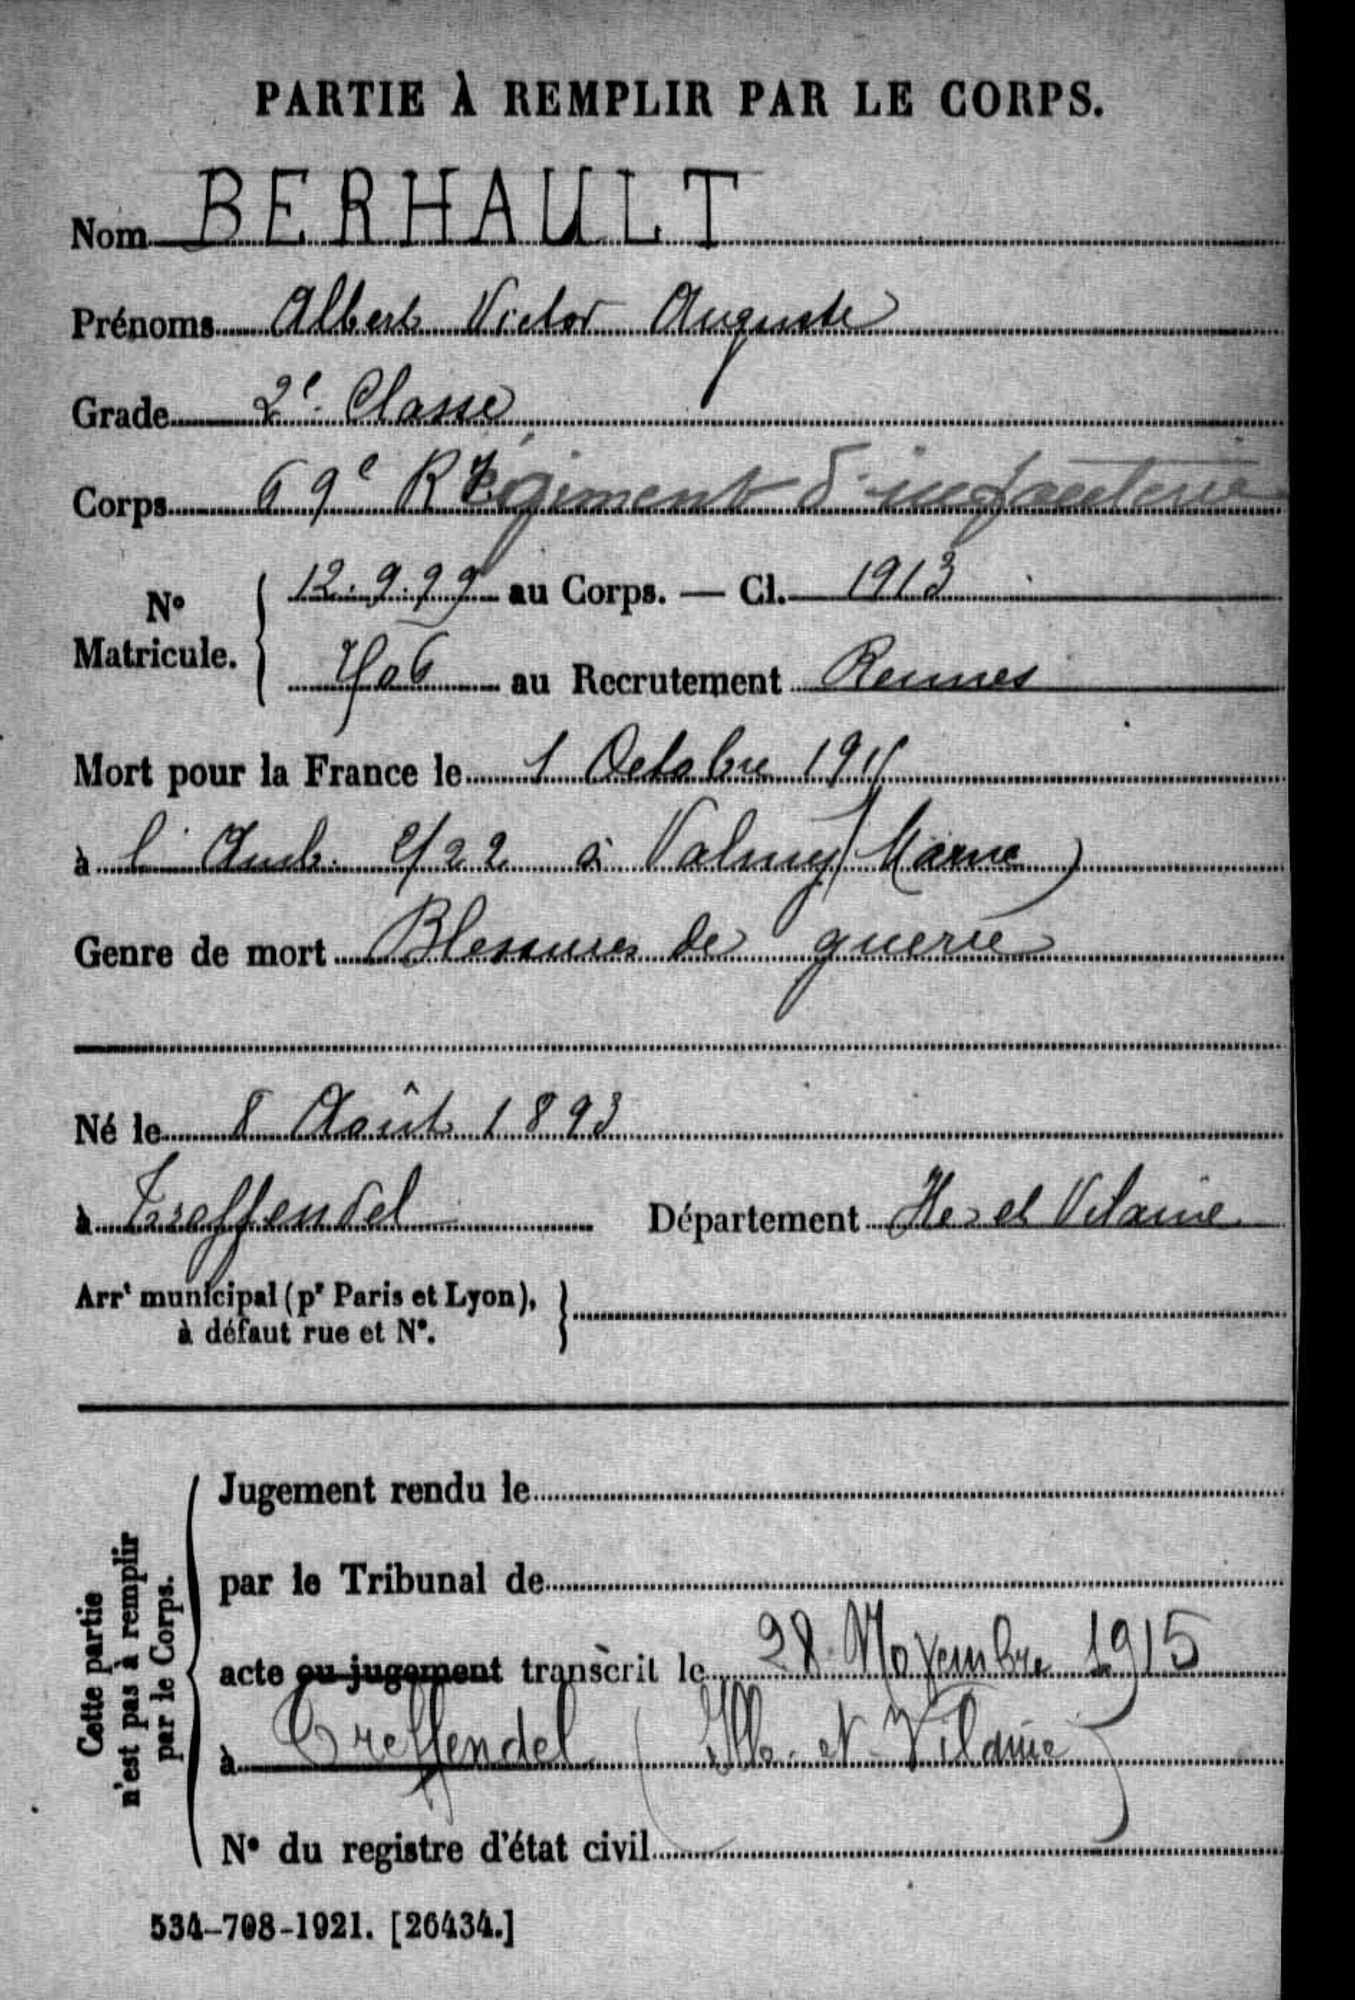 PARTIE À REMPLIR PAR LE CORPS.
Nom BERHAULT
Prénoms Albert Victor Auguste
Grade 2e Classe
Corps 69e Régiment d'infanterie
No Matricule. 12.9.99 au Corps. — Cl. 1913
706 au Recrutement Rennes
Mort pour la France le 1 Octobre 1915
à l'Amb. 2/22 à Valmy (Marne)
Genre de mort Blessures de guerre
Né le 8 Août 1893
à Treffendel Département Ille et Vilaine
Arrt municipal (pr Paris et Lyon),
à défaut rue et No.
Cette partie
n'est pas à remplir
par le Corps.
Jugement rendu le
par le Tribunal de
acte ou jugement transcrit le 28 Novembre 1915
à Treffendel (Ille-et-Vilaine)
No du registre d'état civil
534-708-1921. [26434.]